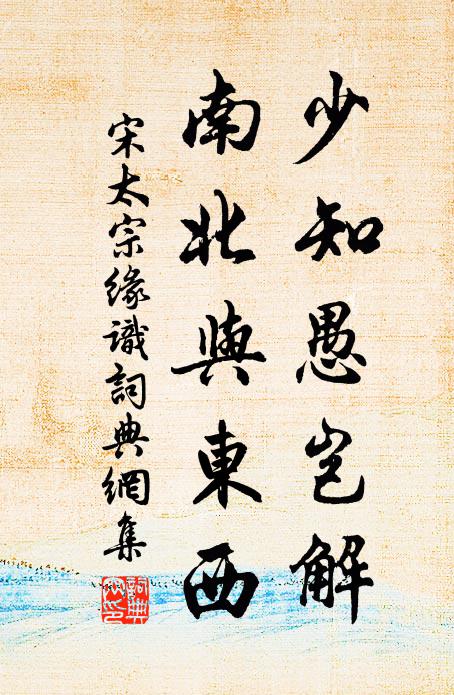 少知愚豈解
南北與東西
宋太宗緣識詞典網集